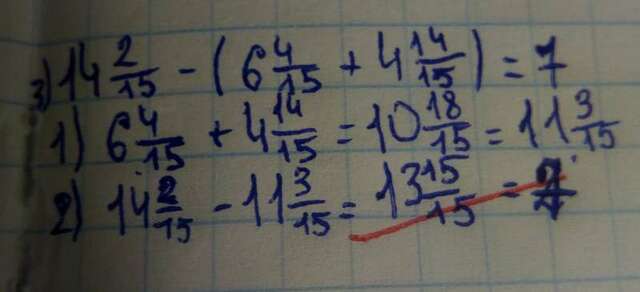 3) 14 2/15 - (6 4/15 + 4 14/15) = 7
1) 6 4/15 + 4 14/15 = 10 18/15 = 11 3/15
2) 14 2/15 - 11 3/15 = 13 15/15 =